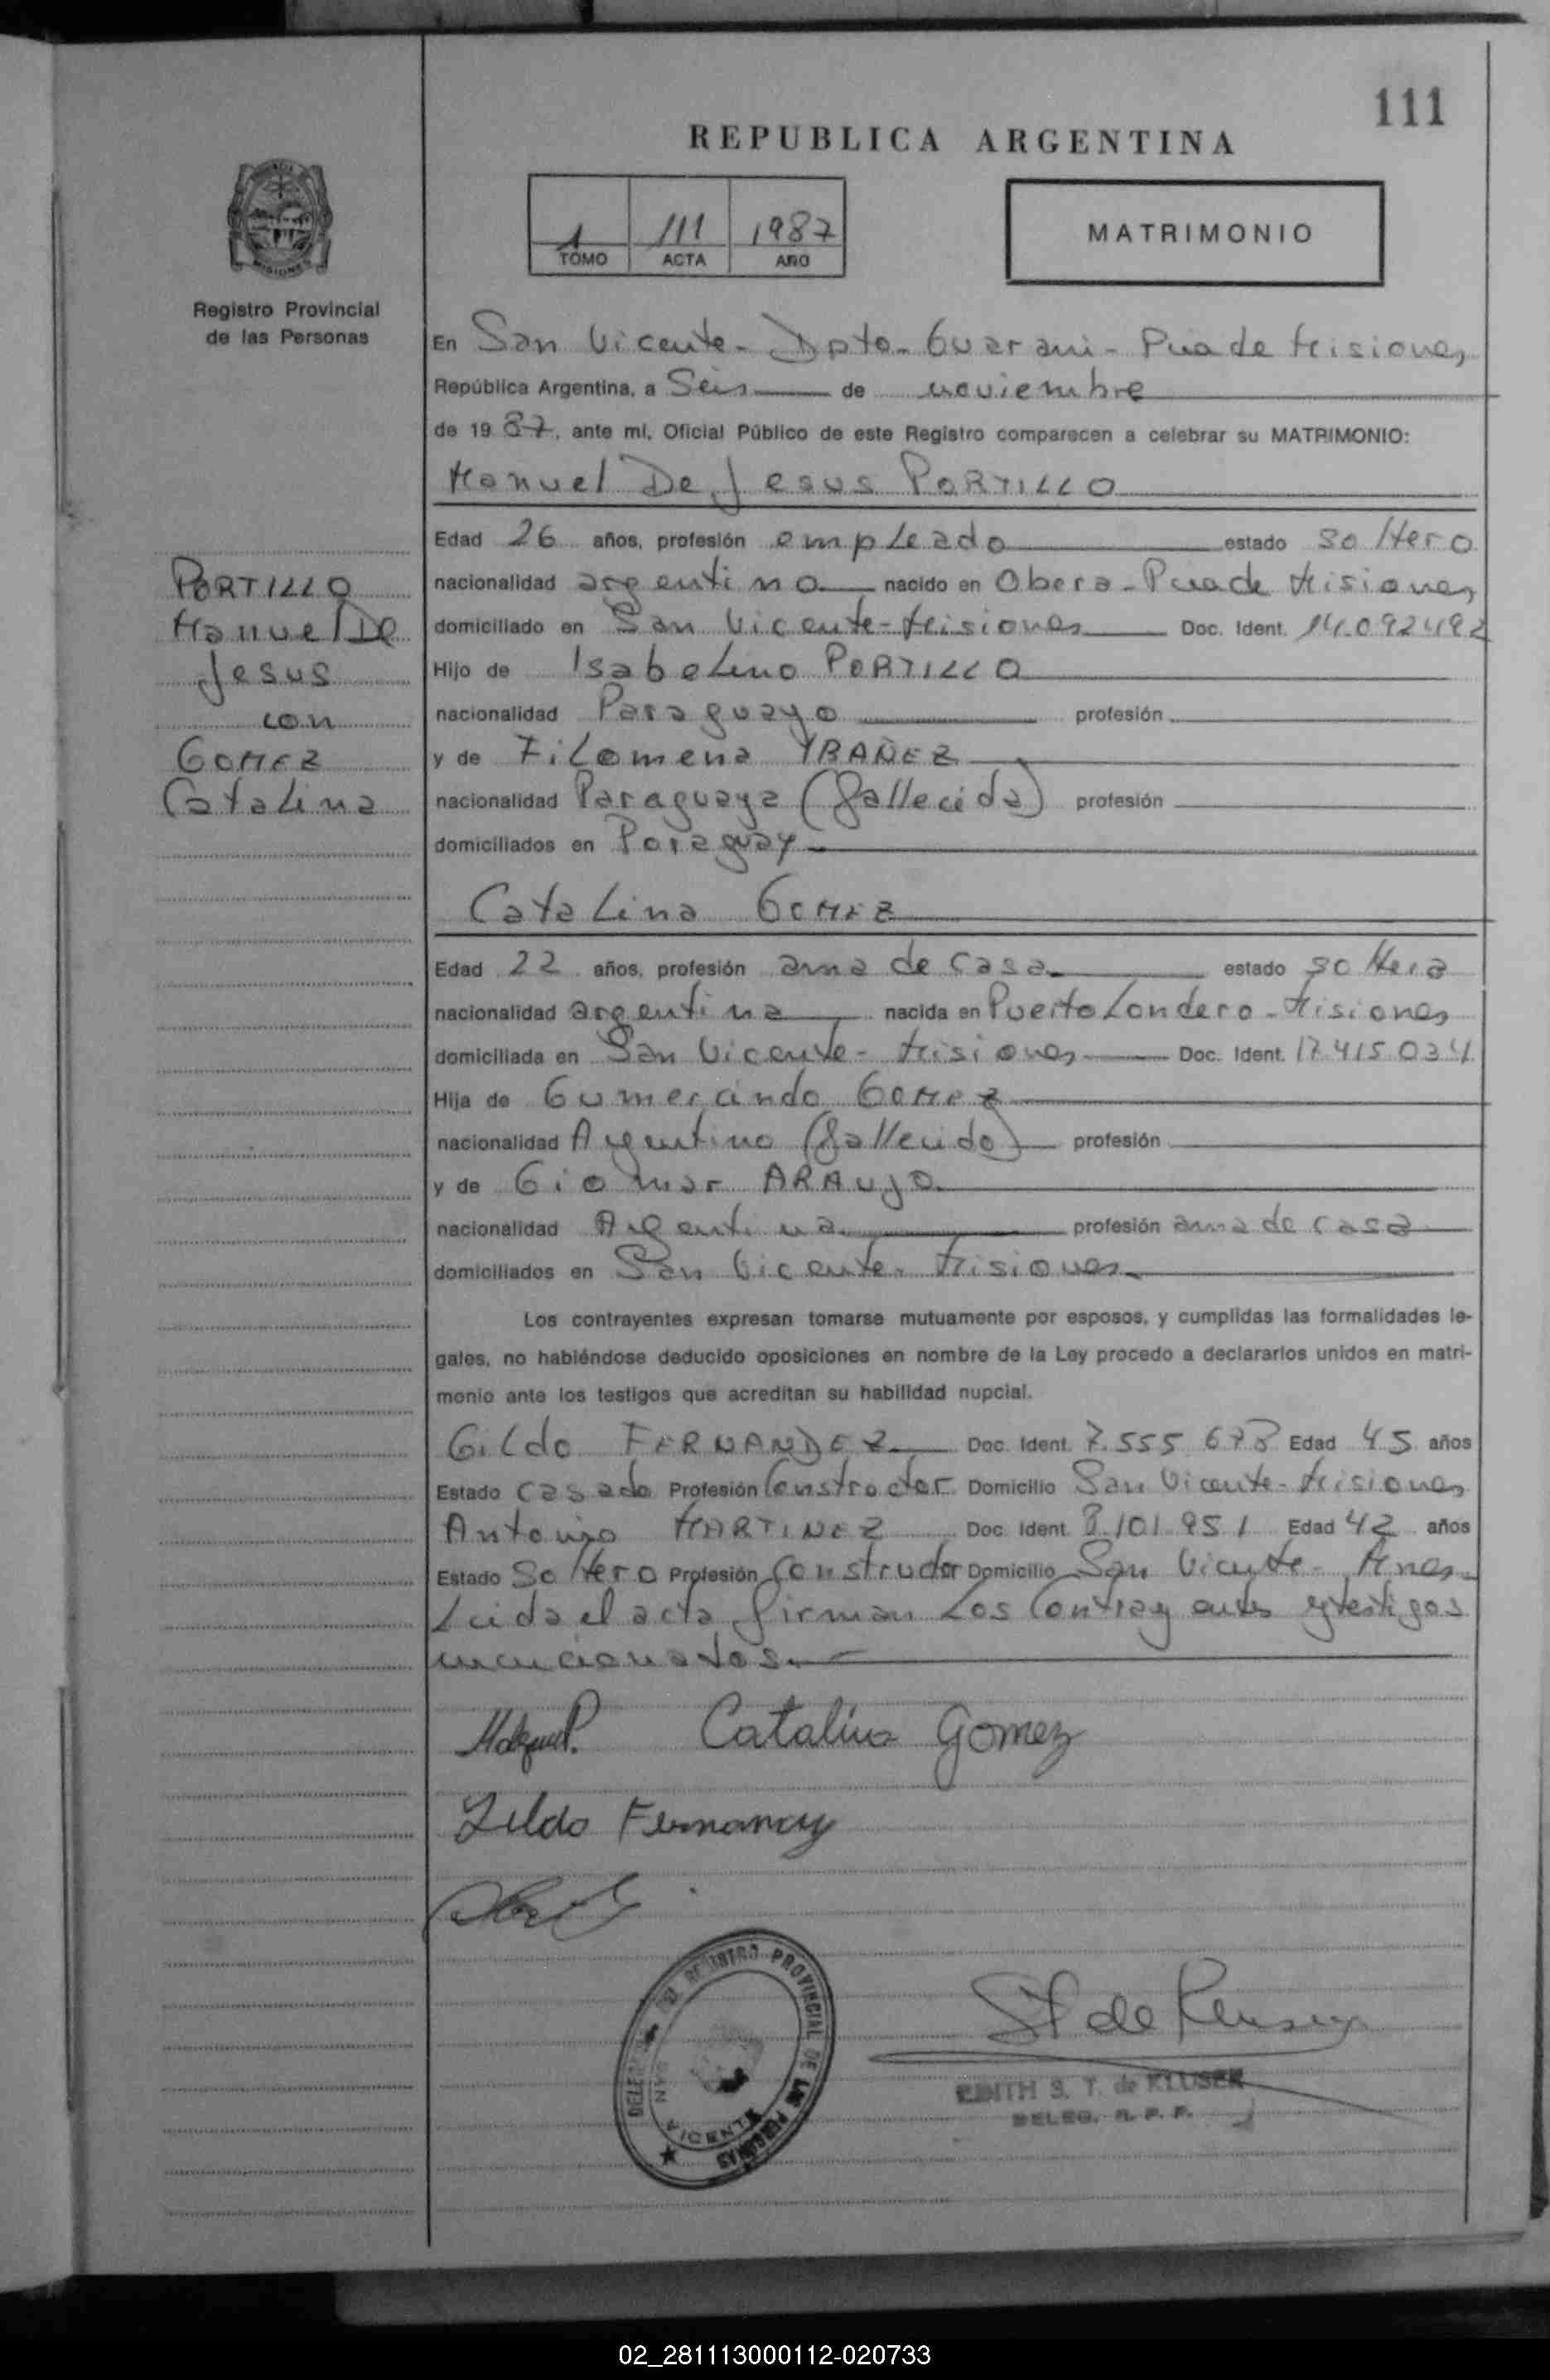 111
REPUBLICA ARGENTINA
1 111 1987
TOMO ACTA AÑO
MATRIMONIO
MISIONES
Registro Provincial
de las Personas
PORTILLO
Manuel De
Jesus
con
GOMEZ
Catalina
En San Vicente - Dpto - Guarani - Pcia de Misiones
República Argentina, a Seis de noviembre
de 19 87, ante mi, Oficial Público de este Registro comparecen a celebrar su MATRIMONIO:
Manuel De Jesus PORTILLO
Edad 26 años, profesión empleado estado soltero
nacionalidad argentino nacido en Obera - Pcia de Misiones
domiciliado en San Vicente - Misiones Doc. Ident. 14.092492
Hijo de Isabelino PORTILLO
nacionalidad Paraguayo profesión
y de Filomena YBAÑEZ
nacionalidad Paraguaya (fallecida) profesión
domiciliados en Paraguay
Catalina GOMEZ
Edad 22 años, profesión ama de casa estado soltera
nacionalidad argentina nacida en Puerto Londero - Misiones
domiciliada en San Vicente - Misiones Doc. Ident. 17.415.034
Hija de Gumercindo GOMEZ
nacionalidad Argentino (fallecido) profesión
y de Giomar ARAUJO
nacionalidad Argentina profesión ama de casa
domiciliados en San Vicente - Misiones
Los contrayentes expresan tomarse mutuamente por esposos, y cumplidas las formalidades le-
gales, no habiéndose deducido oposiciones en nombre de la Ley procedo a declararlos unidos en matri-
monio ante los testigos que acreditan su habilidad nupcial.
Gildo FERNANDEZ Doc. Ident. 7.555.673 Edad 45 años
Estado casado Profesión Constructor Domicilio San Vicente - Misiones
Antonio MARTINEZ Doc. Ident. 8.101.951 Edad 42 años
Estado Soltero Profesión Constructor Domicilio San Vicente - Mnes
Leida el acta firman Los Contrayentes y testigos
mencionados.
Catalina Gomez
Fernandez
REGISTRO PROVINCIAL DE LAS PERSONAS
SAN VICENTE
EDITH S. T. de KLUSER
DELEG. R. P. P.
02_281113000112-020733